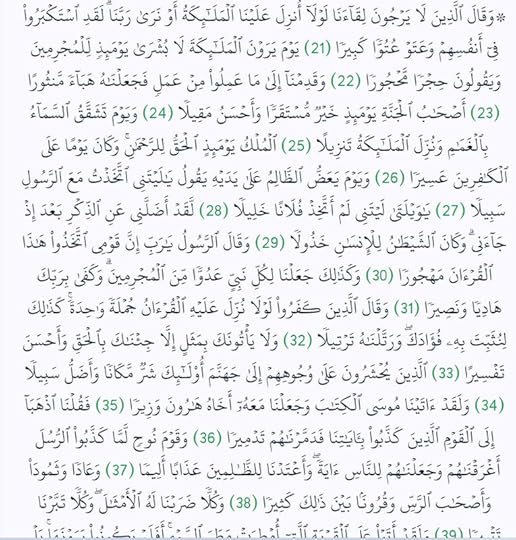 ۞ وَقَالَ ٱلَّذِينَ لَا يَرْجُونَ لِقَآءَنَا لَوْلَآ أُنزِلَ عَلَيْنَا ٱلْمَلَـٰٓئِكَةُ أَوْ نَرَىٰ رَبَّنَا ۗ لَقَدِ ٱسْتَكْبَرُوا۟
فِىٓ أَنفُسِهِمْ وَعَتَوْ عُتُوًّا كَبِيرًا (21) يَوْمَ يَرَوْنَ ٱلْمَلَـٰٓئِكَةَ لَا بُشْرَىٰ يَوْمَئِذٍ لِّلْمُجْرِمِينَ
وَيَقُولُونَ حِجْرًا مَّحْجُورًا (22) وَقَدِمْنَآ إِلَىٰ مَا عَمِلُوا۟ مِنْ عَمَلٍ فَجَعَلْنَـٰهُ هَبَآءً مَّنثُورًا
(23) أَصْحَـٰبُ ٱلْجَنَّةِ يَوْمَئِذٍ خَيْرٌ مُّسْتَقَرًّا وَأَحْسَنُ مَقِيلًا (24) وَيَوْمَ تَشَقَّقُ ٱلسَّمَآءُ
بِٱلْغَمَـٰمِ وَنُزِّلَ ٱلْمَلَـٰٓئِكَةُ تَنزِيلًا (25) ٱلْمُلْكُ يَوْمَئِذٍ ٱلْحَقُّ لِلرَّحْمَـٰنِ ۚ وَكَانَ يَوْمًا عَلَى
ٱلْكَـٰفِرِينَ عَسِيرًا (26) وَيَوْمَ يَعَضُّ ٱلظَّالِمُ عَلَىٰ يَدَيْهِ يَقُولُ يَـٰلَيْتَنِى ٱتَّخَذْتُ مَعَ ٱلرَّسُولِ
سَبِيلًا (27) يَـٰوَيْلَتَىٰ لَيْتَنِى لَمْ أَتَّخِذْ فُلَانًا خَلِيلًا (28) لَّقَدْ أَضَلَّنِى عَنِ ٱلذِّكْرِ بَعْدَ إِذْ
جَآءَنِى ۗ وَكَانَ ٱلشَّيْطَـٰنُ لِلْإِنسَـٰنِ خَذُولًا (29) وَقَالَ ٱلرَّسُولُ يَـٰرَبِّ إِنَّ قَوْمِى ٱتَّخَذُوا۟ هَـٰذَا
ٱلْقُرْءَانَ مَهْجُورًا (30) وَكَذَٰلِكَ جَعَلْنَا لِكُلِّ نَبِىٍّ عَدُوًّا مِّنَ ٱلْمُجْرِمِينَ ۗ وَكَفَىٰ بِرَبِّكَ
هَادِيًا وَنَصِيرًا (31) وَقَالَ ٱلَّذِينَ كَفَرُوا۟ لَوْلَا نُزِّلَ عَلَيْهِ ٱلْقُرْءَانُ جُمْلَةً وَٰحِدَةً ۚ كَذَٰلِكَ
لِنُثَبِّتَ بِهِۦ فُؤَادَكَ ۖ وَرَتَّلْنَـٰهُ تَرْتِيلًا (32) وَلَا يَأْتُونَكَ بِمَثَلٍ إِلَّا جِئْنَـٰكَ بِٱلْحَقِّ وَأَحْسَنَ
تَفْسِيرًا (33) ٱلَّذِينَ يُحْشَرُونَ عَلَىٰ وُجُوهِهِمْ إِلَىٰ جَهَنَّمَ أُو۟لَـٰٓئِكَ شَرٌّ مَّكَانًا وَأَضَلُّ سَبِيلًا
(34) وَلَقَدْ ءَاتَيْنَا مُوسَى ٱلْكِتَـٰبَ وَجَعَلْنَا مَعَهُۥٓ أَخَاهُ هَـٰرُونَ وَزِيرًا (35) فَقُلْنَا ٱذْهَبَآ
إِلَى ٱلْقَوْمِ ٱلَّذِينَ كَذَّبُوا۟ بِـَٔايَـٰتِنَا فَدَمَّرْنَـٰهُمْ تَدْمِيرًا (36) وَقَوْمَ نُوحٍ لَّمَّا كَذَّبُوا۟ ٱلرُّسُلَ
أَغْرَقْنَـٰهُمْ وَجَعَلْنَـٰهُمْ لِلنَّاسِ ءَايَةً ۖ وَأَعْتَدْنَا لِلظَّـٰلِمِينَ عَذَابًا أَلِيمًا (37) وَعَادًا وَثَمُودَا۟
وَأَصْحَـٰبَ ٱلرَّسِّ وَقُرُونًۢا بَيْنَ ذَٰلِكَ كَثِيرًا (38) وَكُلًّا ضَرَبْنَا لَهُ ٱلْأَمْثَـٰلَ ۖ وَكُلًّا تَبَّرْنَا
تَتْبِيرًا (39) وَلَقَدْ أَتَوْا۟ عَلَى ٱلْقَرْيَةِ ٱلَّتِىٓ أُمْطِرَتْ مَطَرَ ٱلسَّوْءِ ۚ أَفَلَمْ يَكُونُوا۟ يَرَوْنَهَا ۚ بَلْ